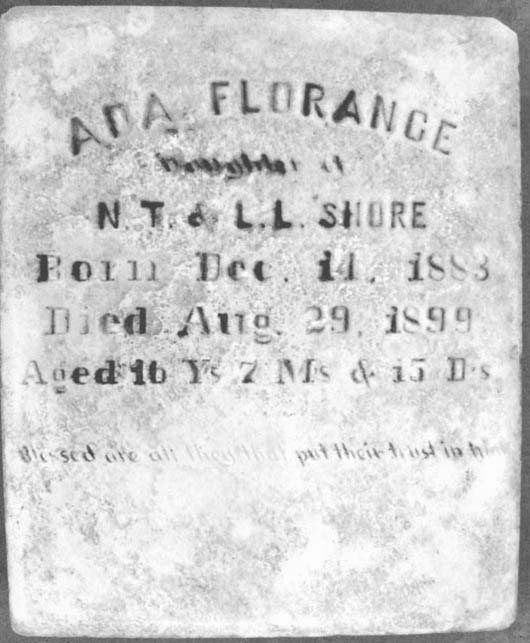 ADA FLORANCE
Daughter of
N. T. & L. L. SHORE
Born Dec. 14, 1883
Died Aug. 29, 1899
Aged 16 Ys 7 Ms & 15 Ds
Blessed are all they that put their trust in him